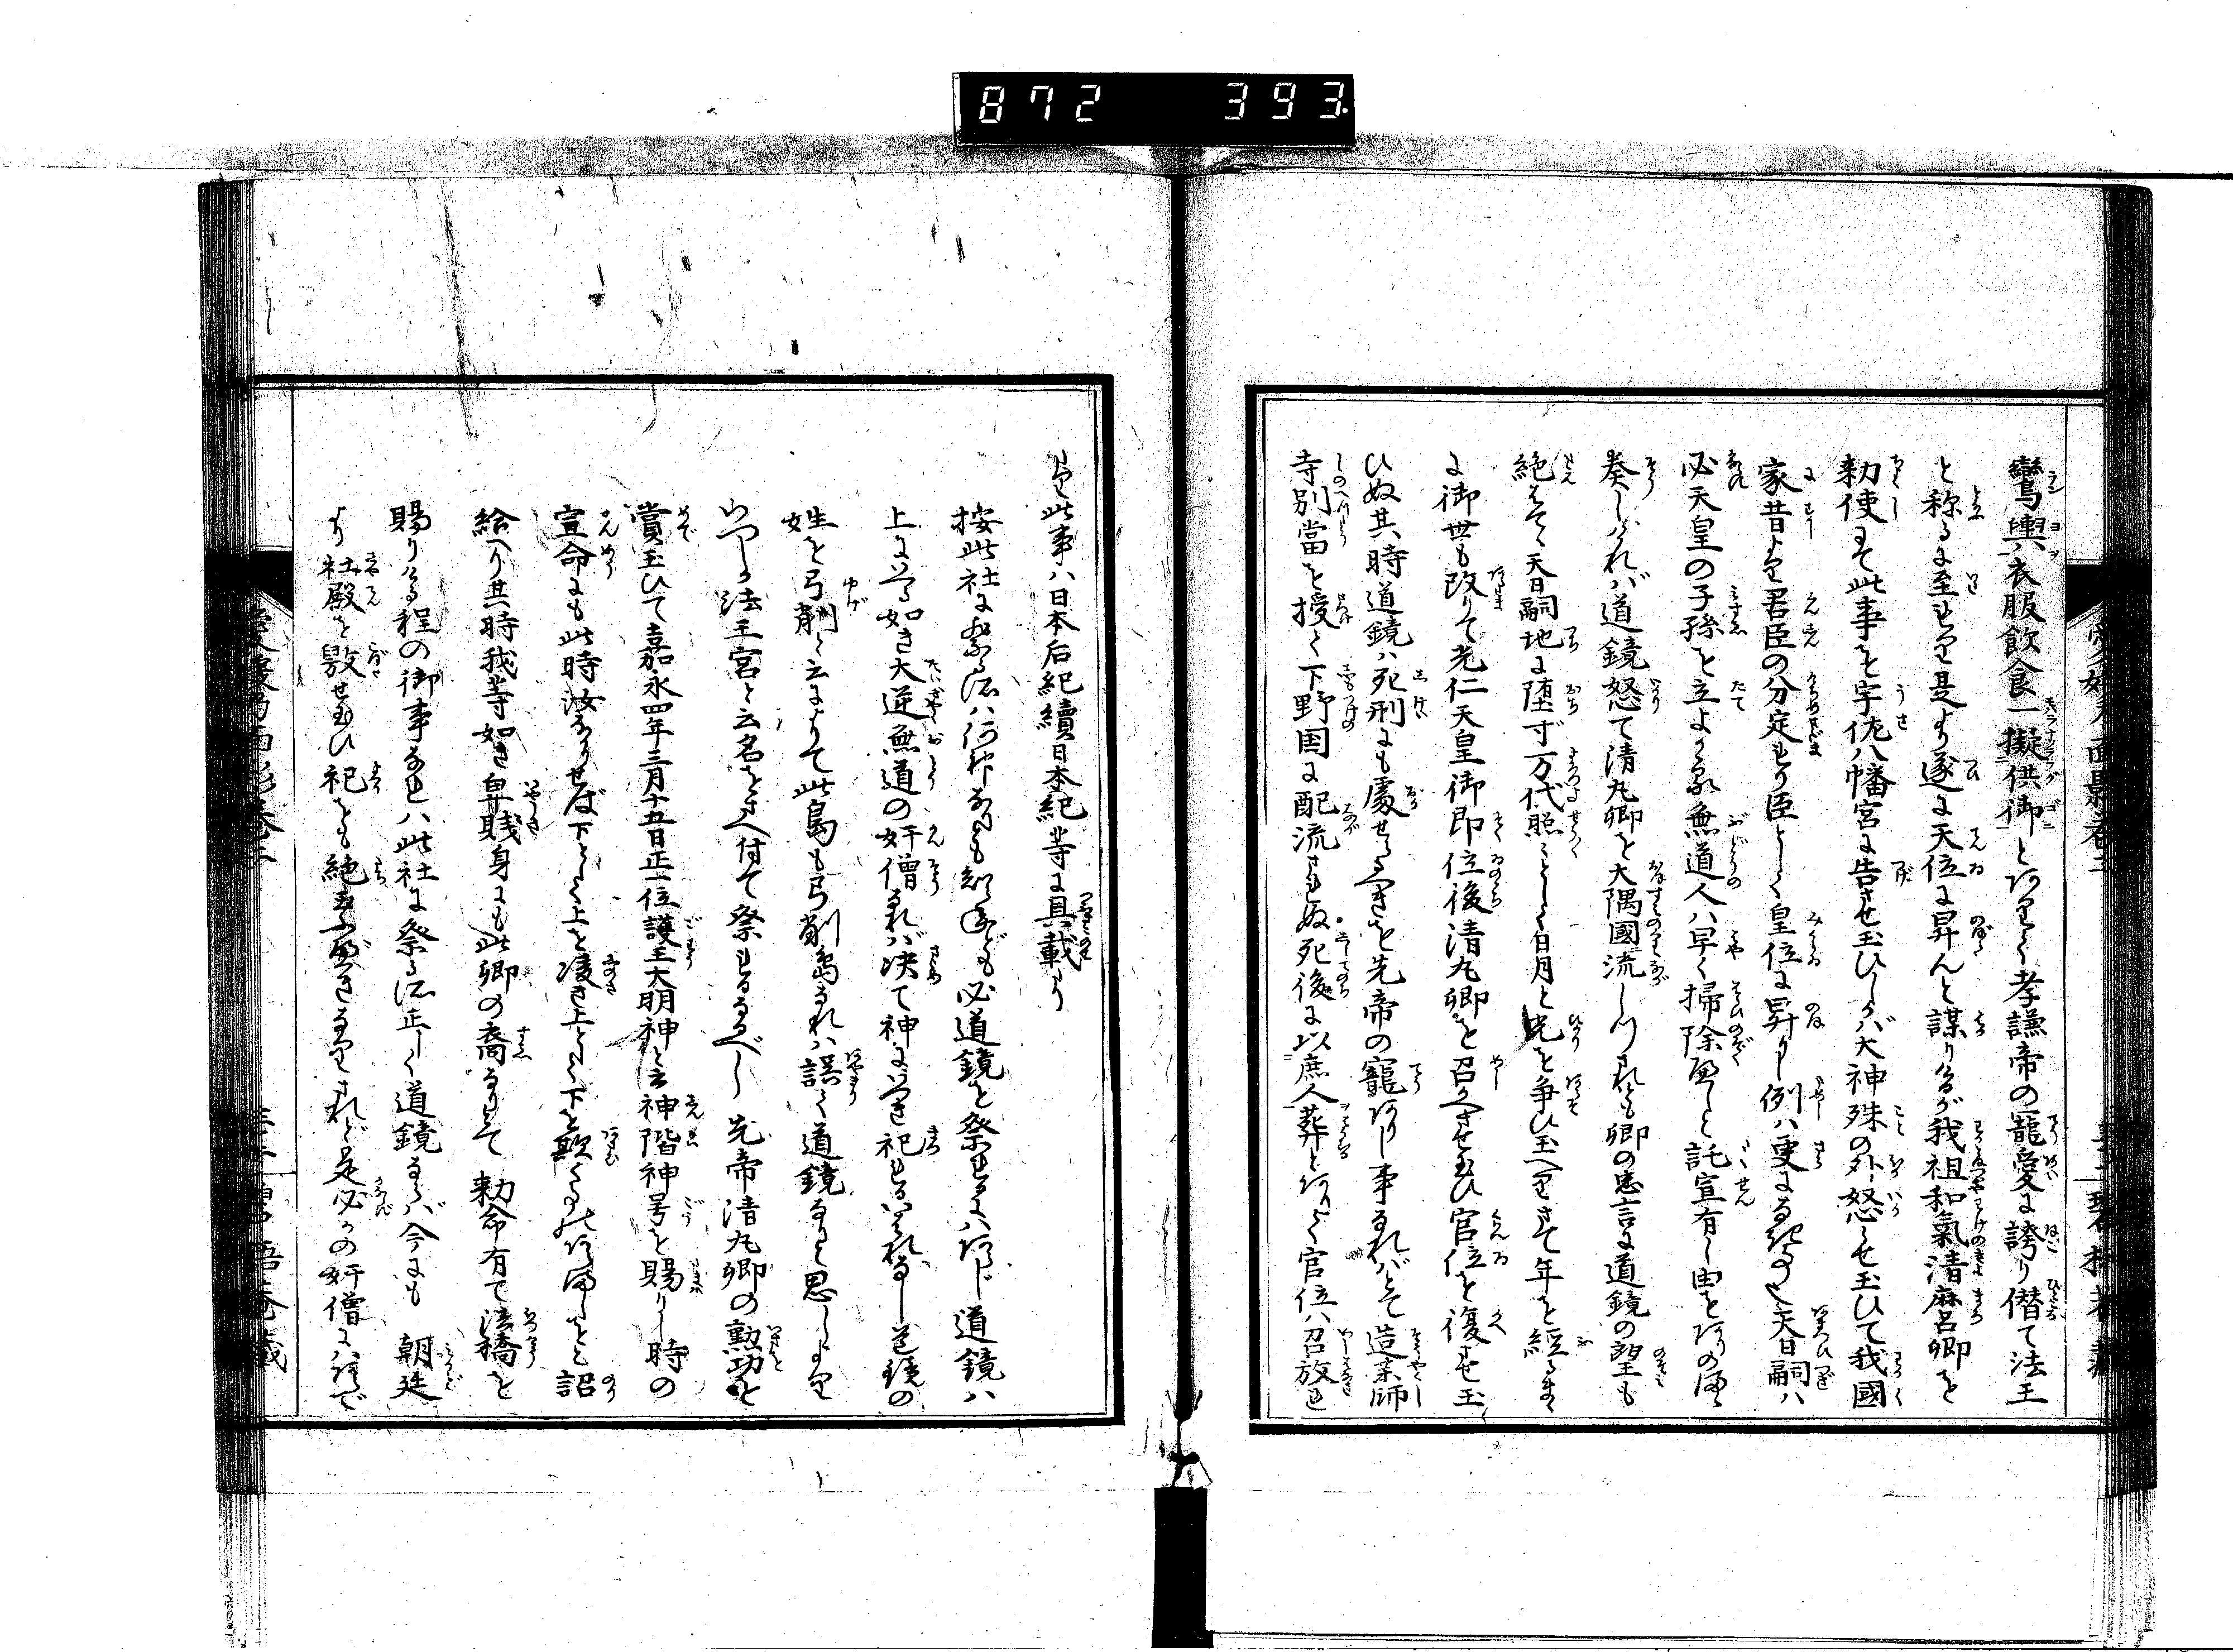 872 393
鸞輿衣服飲食一擬供御とありて孝謙帝の寵愛に誇り僭て法王
と称るに至れり是より遂に天位に昇んと謀りけるが我祖和氣清麿呂卿を
勅使にて此事を宇佐八幡宮に告させ玉ひしかバ大神殊の外怒らせ玉ひて我國
家昔より君臣の分定れり臣として皇位に昇りし例ハ更になき事也天日嗣ハ
必天皇の子孫を立よかし無道人ハ早く掃除べしと託宣有し由をありのまゝ
奏しけれバ道鏡怒て清丸卿を大隅國に流しつされども卿の忠言に道鏡の望も
絶はてゝ天日嗣地に堕ず万代照々として日月と光を争ひ玉へりさて年を経るまゝ
に御世も改りて光仁天皇御即位後清丸卿を召かへさせ玉ひ官位を復させ玉
ひぬ其時道鏡ハ死刑にも處せらるべきを先帝の寵ありし事なれバとて造薬師
寺別當を授て下野国に配流されぬ死後に以庶人葬とありて官位ハ召放され
たり此事ハ日本后紀續日本紀等に具載たり
按此社に祭る所ハ何神なりとも知ねども必道鏡を祭れるにハあらじ道鏡ハ
上にいへる如き大逆無道の奸僧なれバ决て神にいつき祀るいはれなし道鏡の
姓を弓削と云によりて此島も弓削島なれハ誤て道鏡なりと思ひしより
いつしか法王宮と云名をさへ付て祭れるなるべし 先帝清丸卿の勲功を
賞玉ひて嘉永四年三月十五日正一位護王大明神と云神階神号を賜りし時の
宣命にも此時汝なかりせば下として上を凌き上として下を欺くためしあらましをと詔
給へり其時我等如き卑賤身にも此卿の裔なりとて 勅命有て法橋を
賜りける程の御事なれハ此社に祭る所正しく道鏡ならバ今にも 朝廷
より社殿を毀せ玉ひ祀をも絶玉ふべきなりされど是必かの奸僧にハ非で